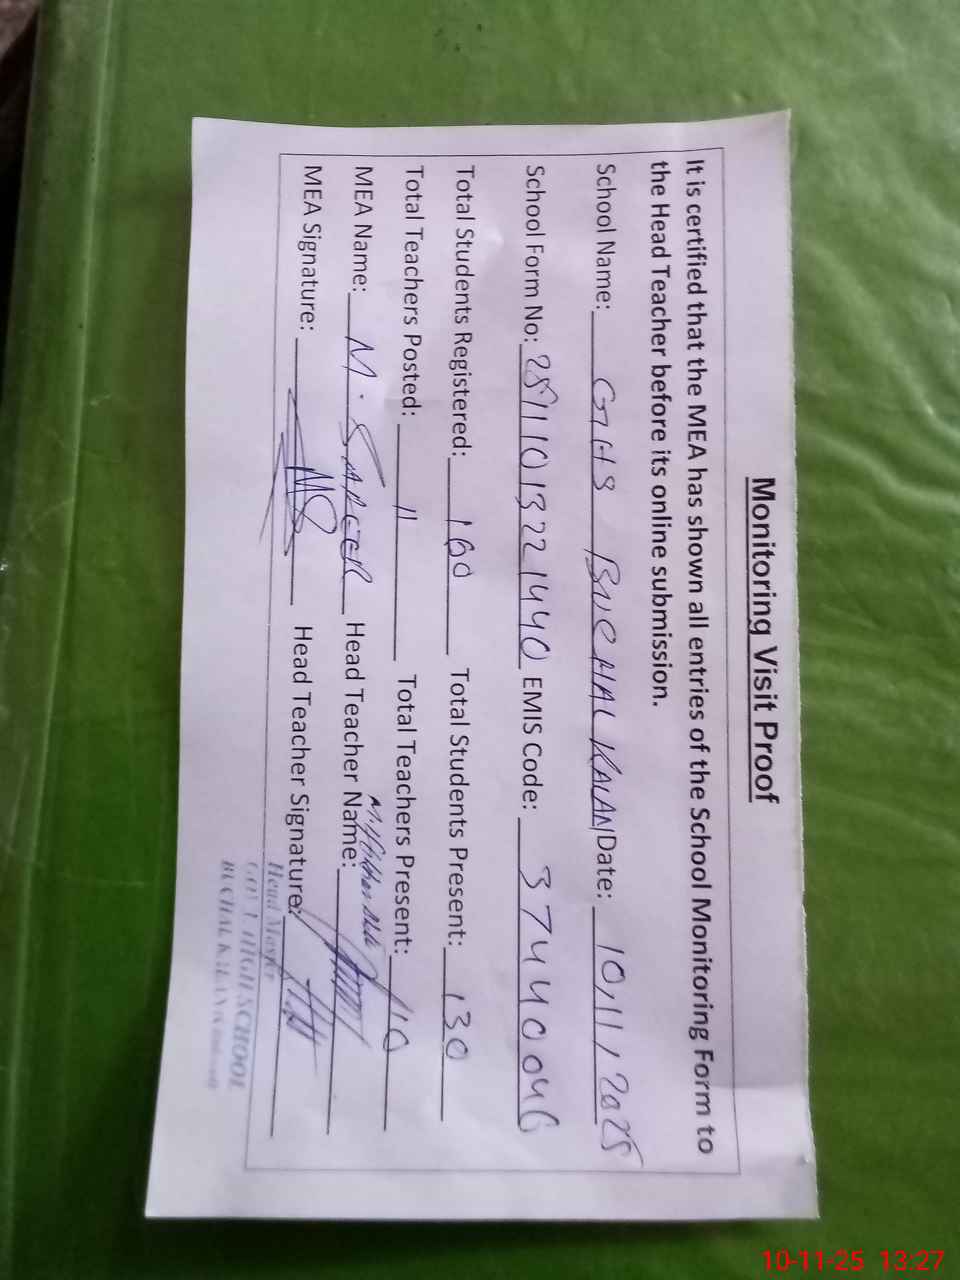 Monitoring Visit Proof
It is certified that the MEA has shown all entries of the School Monitoring Form to
the Head Teacher before its online submission.
School Name: GHS BUCHAL KALAN Date: 10/11/2025
School Form No: 2811013221440 EMIS Code: 37440046
Total Students Registered: 160 Total Students Present: 130
Total Teachers Posted: 11 Total Teachers Present: 10
MEA Name: M. SAFEER Head Teacher Name:
MEA Signature: MS Head Teacher Signature:
Head Master
GOVT. HIGH SCHOOL
BUCHAL KALAN
10-11-25 13:27